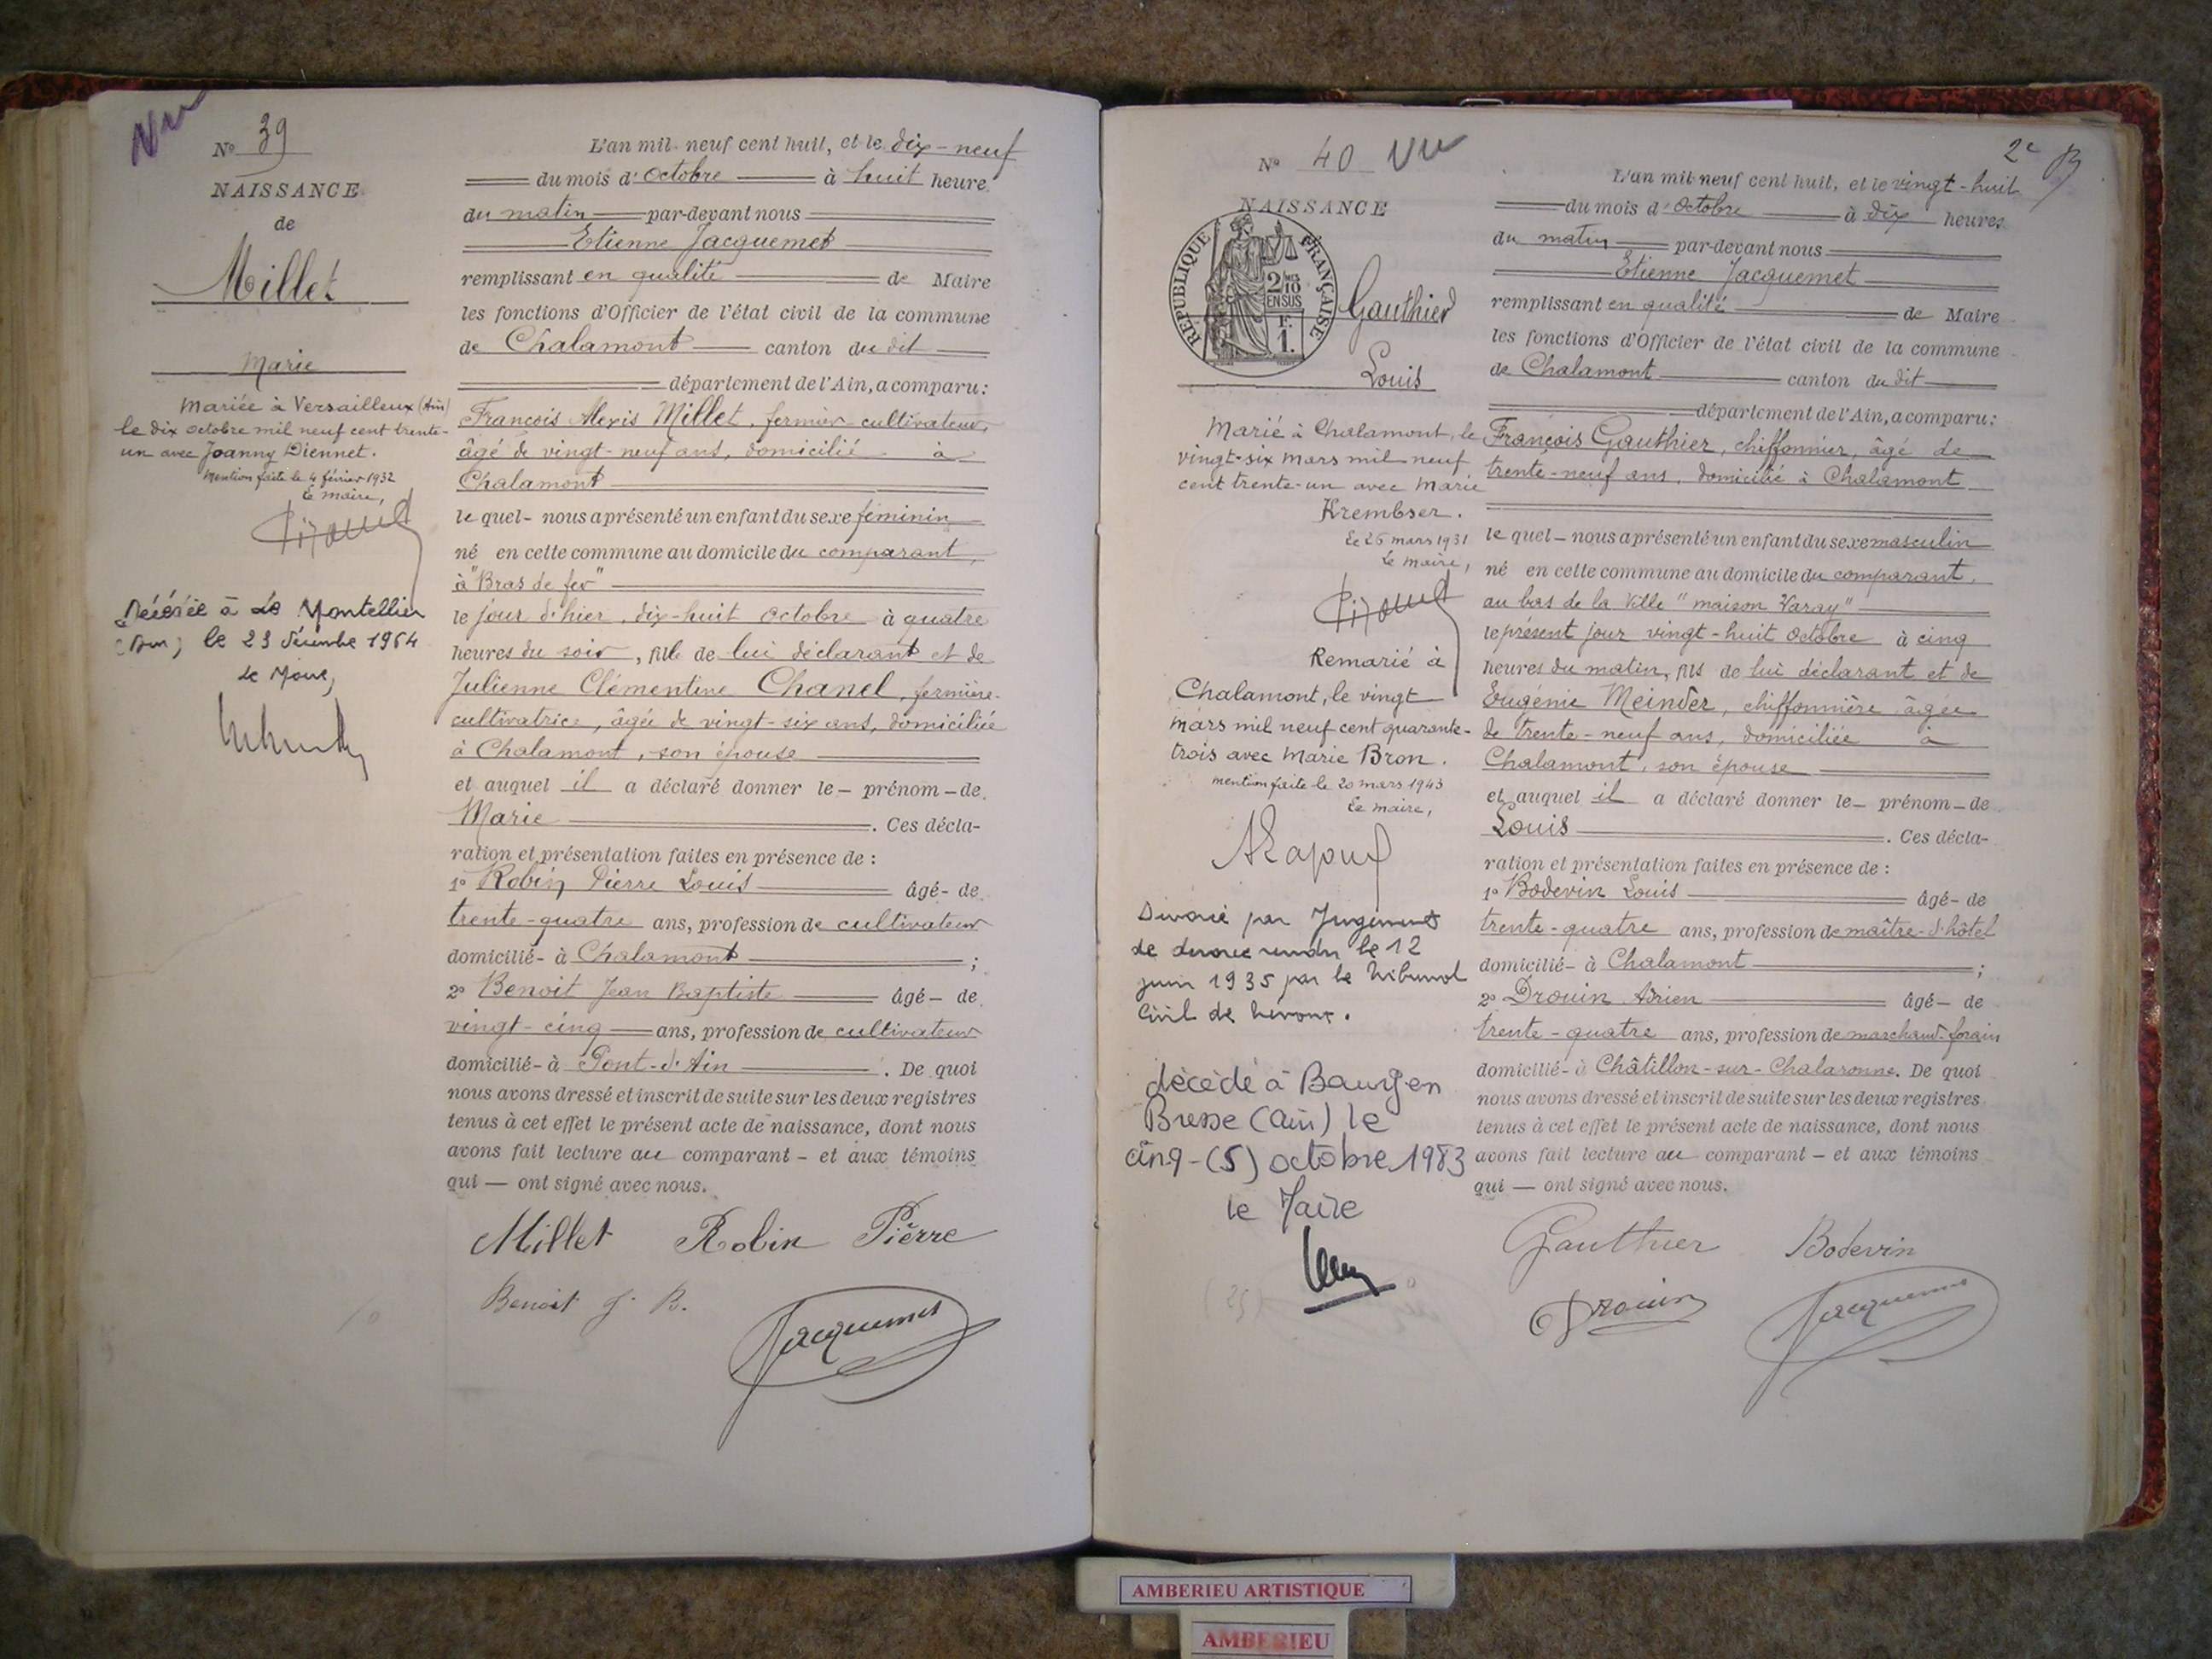 Vu
N° 39
NAISSANCE
de
Millet
Marie
Mariée à Versailleux (Ain)
le dix octobre mil neuf cent trente-
un avec Joanny Diennet.
Mention faite le 4 février 1932
Le maire,
Décédée à Le Montellier
(Ain) le 23 décembre 1964
Le Maire,
L'an mil neuf cent huit, et le dix-neuf
du mois d'octobre à huit heure
du matin par-devant nous
Etienne Jacquemet
remplissant en qualité de Maire
les fonctions d'Officier de l'état civil de la commune
de Chalamont canton du dit
département de l'Ain, a comparu:
François Alexis Millet, fermier-cultivateur,
âgé de vingt-neuf ans, domicilié à
Chalamont
le quel - nous a présenté un enfant du sexe féminin
né en cette commune au domicile du comparant,
à "Bras de fer"
le jour d'hier, dix-huit octobre à quatre
heures du soir, fille de lui déclarant et de
Julienne Clémentine Chanel, fermière-
cultivatrice, âgée de vingt-six ans, domiciliée
à Chalamont, son épouse
et auquel il a déclaré donner le - prénom - de
Marie . Ces décla-
ration et présentation faites en présence de :
1° Robin Pierre Louis âgé - de
trente-quatre ans, profession de cultivateur
domicilié - à Chalamont ;
2° Benoit Jean Baptiste âgé - de
vingt-cinq ans, profession de cultivateur
domicilié - à Pont-d'Ain . De quoi
nous avons dressé et inscrit de suite sur les deux registres
tenus à cet effet le présent acte de naissance, dont nous
avons fait lecture au comparant - et aux témoins
qui — ont signé avec nous.
Millet Robin Pierre
Benoit J. B.
Jacquemet
N° 40 Vu
NAISSANCE
RÉPUBLIQUE FRANÇAISE
2/10
EN SUS
F.
1.
Gauthier
Louis
Marié à Chalamont, le
vingt-six mars mil neuf
cent trente-un avec Marie
Krembser.
Le 26 mars 1931
Le maire,
Remarié à
Chalamont, le vingt
mars mil neuf cent quarante-
trois avec Marie Bron.
mention faite le 20 mars 1943
Le maire,
Divorcé par Jugement
de divorce rendu le 12
juin 1935 par le Tribunal
Civil de
décédé à Bourg en
Bresse (Ain) le
cinq - (5) octobre 1983
le Maire
2e B
L'an mil neuf cent huit, et le vingt-huit
du mois d'octobre à dix heures
du matin par-devant nous
Etienne Jacquemet
remplissant en qualité de Maire
les fonctions d'Officier de l'état civil de la commune
de Chalamont canton du dit
département de l'Ain, a comparu:
François Gauthier, chiffonnier, âgé de
trente-neuf ans, domicilié à Chalamont
le quel - nous a présenté un enfant du sexe masculin
né en cette commune au domicile du comparant,
au bas de la Ville "maison Varay"
le présent jour vingt-huit octobre à cinq
heures du matin, fils de lui déclarant et de
Eugénie Meinder, chiffonnière âgée
de trente-neuf ans, domiciliée à
Chalamont, son épouse
et auquel il a déclaré donner le - prénom - de
Louis . Ces décla-
ration et présentation faites en présence de :
1° Bodevin Louis âgé - de
trente-quatre ans, profession de maître-d'hôtel
domicilié - à Chalamont ;
2° Drouin Adrien âgé - de
trente-quatre ans, profession de marchand-forain
domicilié - à Châtillon-sur-Chalaronne. De quoi
nous avons dressé et inscrit de suite sur les deux registres
tenus à cet effet le présent acte de naissance, dont nous
avons fait lecture au comparant - et aux témoins
qui — ont signé avec nous.
Gauthier Bodevin
Drouin Jacquemet
AMBERIEU ARTISTIQUE
AMBERIEU